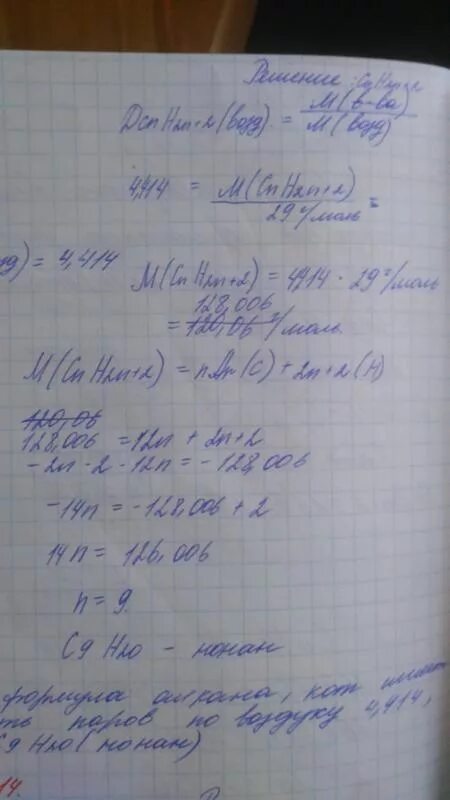 Решение: CnH2n+2
DCnH2n+2 (возд). = M(в-ва) / M(возд)
4,414 = M(CnH2n+2) / 29 г/моль =
) = 4,414
M(CnH2n+2) = 4,414 · 29 г/моль
128,006
= 120,06 г/моль
M(CnH2n+2) = nAr(C) + 2n+2(H)
120,06
128,006 = 12n + 2n+2
-2n - 2 - 12n = -128,006
-14n = -128,006 + 2
14n = 126,006
n = 9.
C9H20 - нонан
формула алкана, кот имеет
паров по воздуху 4,414,
C9H20 (нонан)
14.